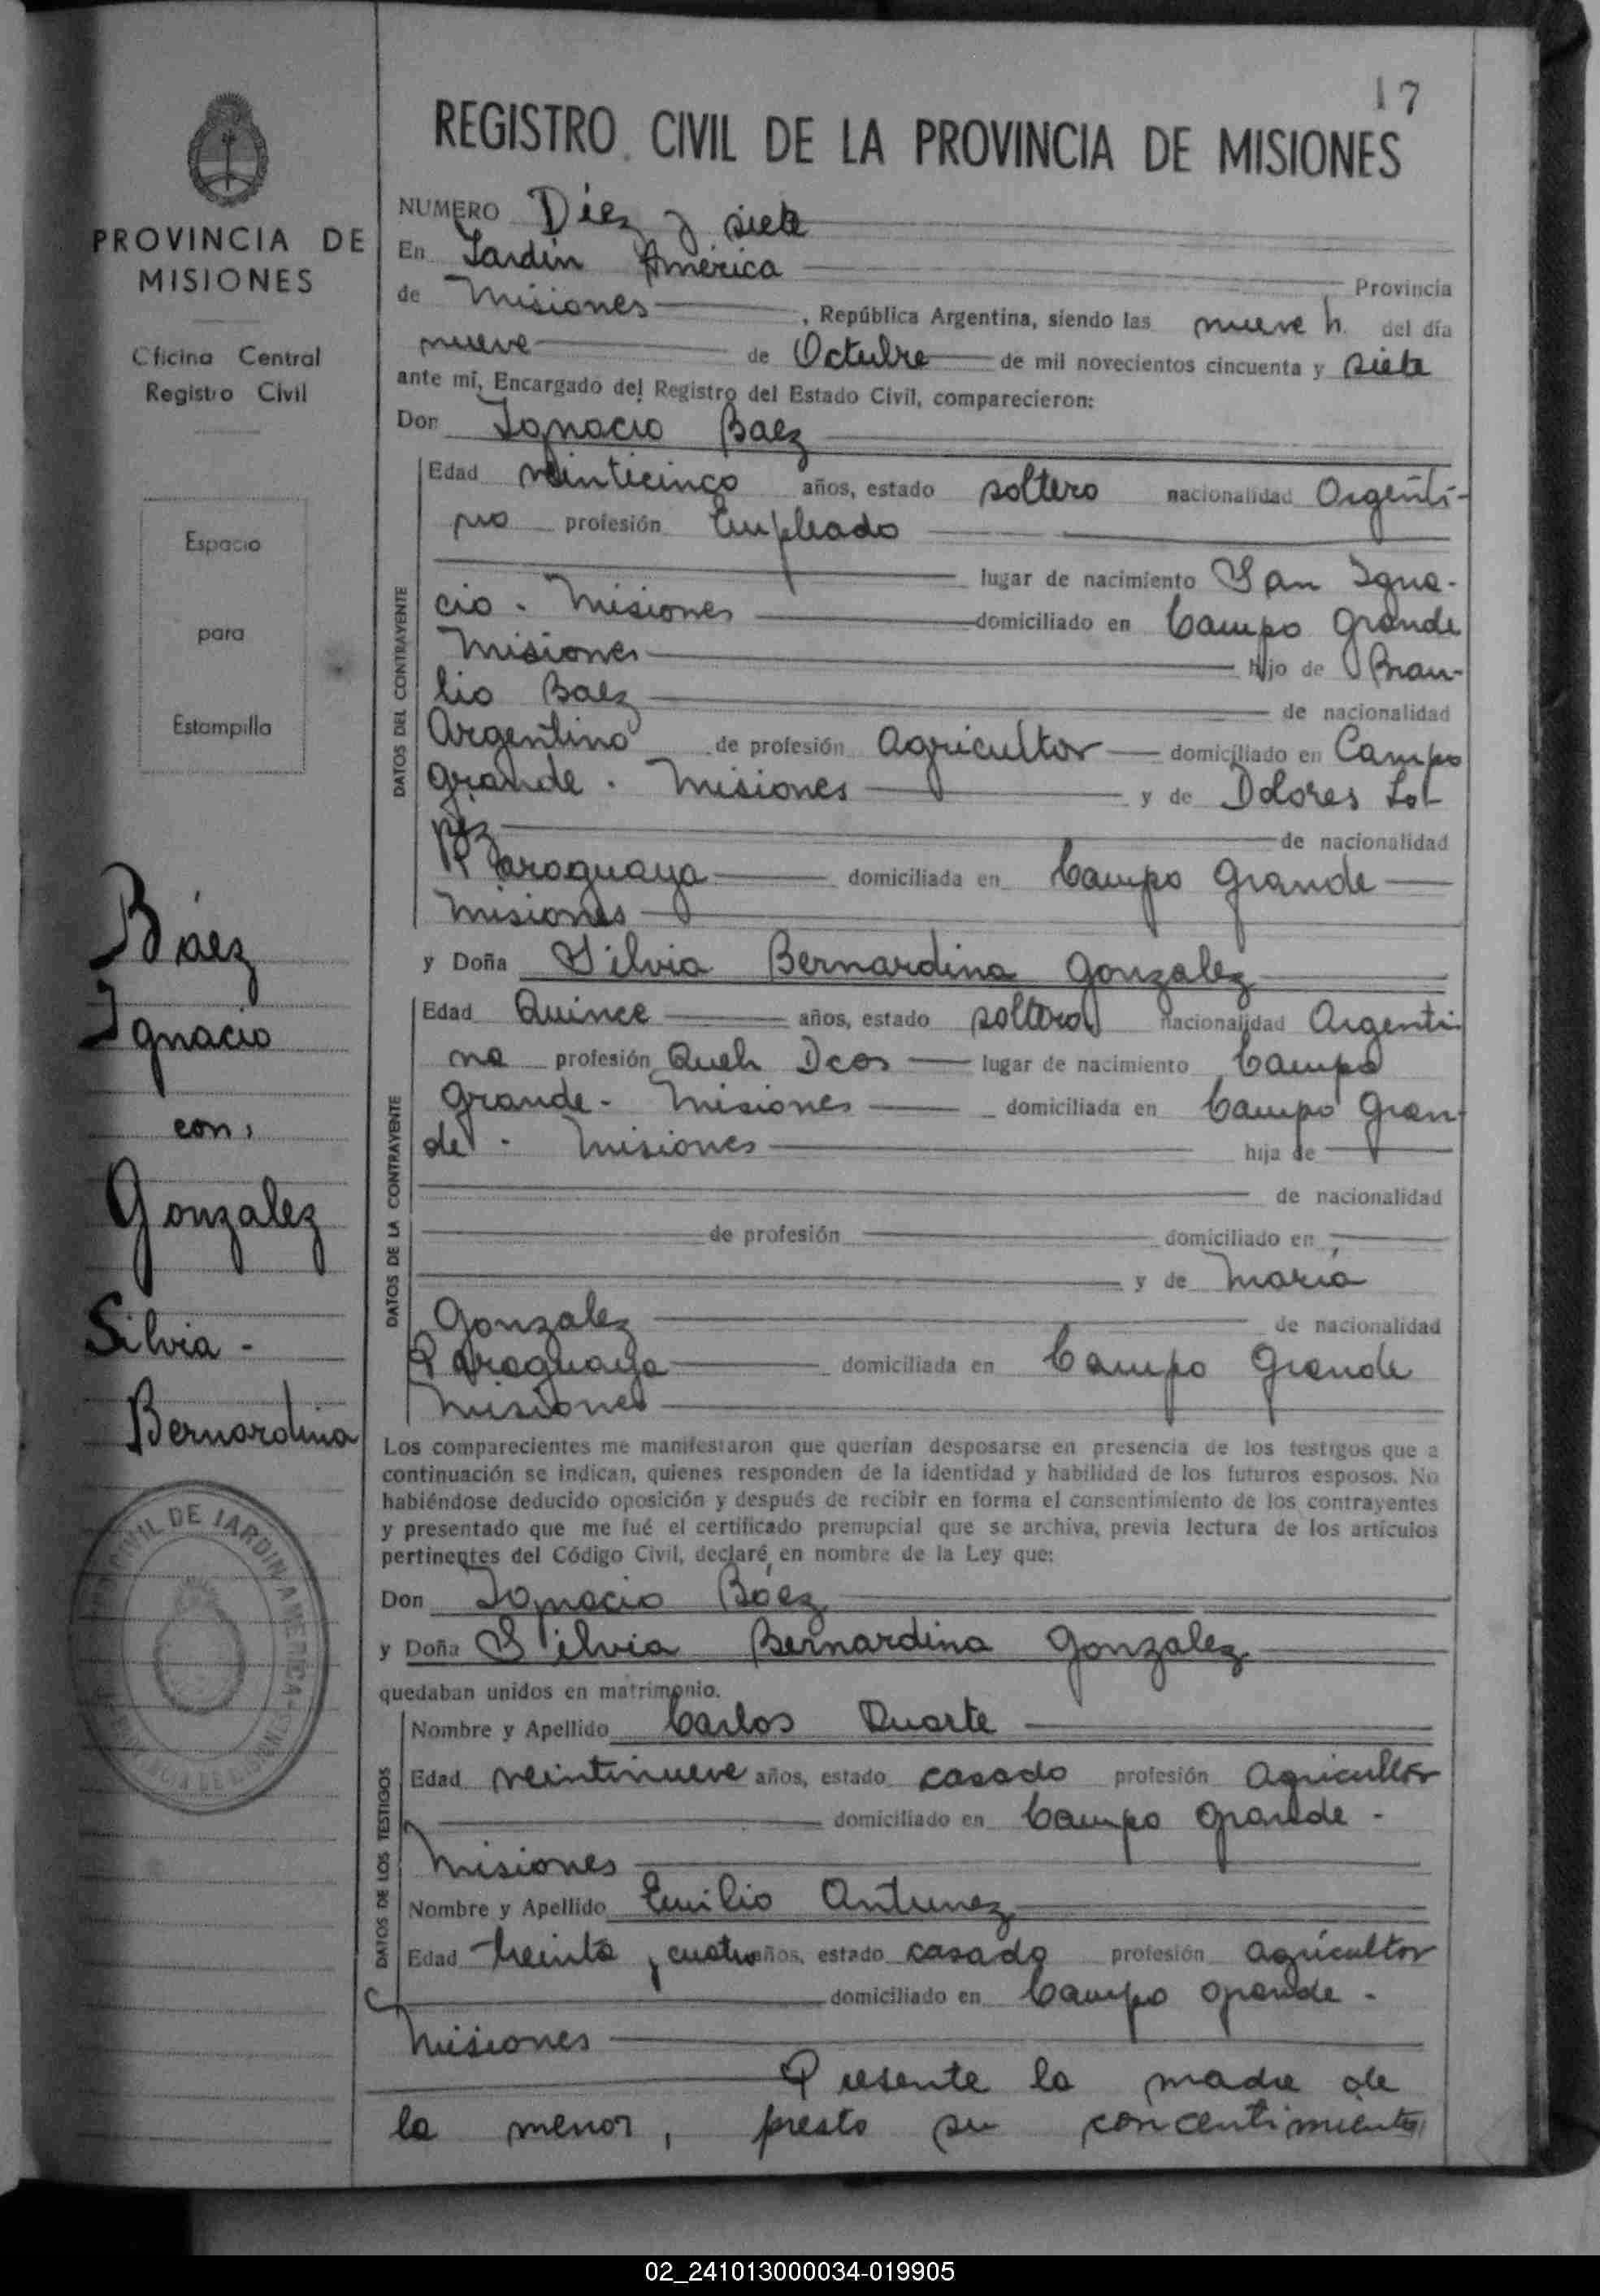 17
REGISTRO CIVIL DE LA PROVINCIA DE MISIONES
PROVINCIA DE
MISIONES
Oficina Central
Registro Civil
Espacio
para
Estampilla
Báez
Ignacio
con,
Gonzalez
Silvia -
Bernardina
CIVIL DE JARDIN AMERICA
NUMERO Diez y siete
En Jardín América Provincia
de Misiones, República Argentina, siendo las nueve h. del día
nueve de Octubre de mil novecientos cincuenta y siete
ante mí, Encargado del Registro del Estado Civil, comparecieron:
Don Ignacio Baez
DATOS DEL CONTRAYENTE
Edad veinticinco años, estado soltero nacionalidad Argenti-
no profesión Empleado
lugar de nacimiento San Igna-
cio. Misiones domiciliado en Campo Grande
Misiones hijo de Brau-
lio Baez de nacionalidad
Argentino de profesión Agricultor domiciliado en Campo
Grande. Misiones y de Dolores Lo-
pez de nacionalidad
Paraguaya domiciliada en Campo Grande
Misiones
y Doña Silvia Bernardina Gonzalez
DATOS DE LA CONTRAYENTE
Edad Quince años, estado soltera nacionalidad Argenti
na profesión Queh Dcos lugar de nacimiento Campo
Grande- Misiones domiciliada en Campo Gran-
de. Misiones hija de
de nacionalidad
de profesión domiciliado en
y de María
Gonzalez de nacionalidad
Paraguaya domiciliada en Campo Grande
Misiones
Los comparecientes me manifestaron que querían desposarse en presencia de los testigos que a
continuación se indican, quienes responden de la identidad y habilidad de los futuros esposos. No
habiéndose deducido oposición y después de recibir en forma el consentimiento de los contrayentes
y presentado que me fué el certificado prenupcial que se archiva, previa lectura de los artículos
pertinentes del Código Civil, declaré en nombre de la Ley que:
Don Ignacio Báez
y Doña Silvia Bernardina Gonzalez
quedaban unidos en matrimonio.
DATOS DE LOS TESTIGOS
Nombre y Apellido Carlos Duarte
Edad veintinueve años, estado casado profesión Agricultor
domiciliado en Campo Grande -
Misiones
Nombre y Apellido Emilio Antunez
Edad treinta y cuatro años, estado casado profesión agricultor
domiciliado en Campo Grande -
Misiones
Presente la madre de
la menor, presto su concentimiento
02_241013000034-019905